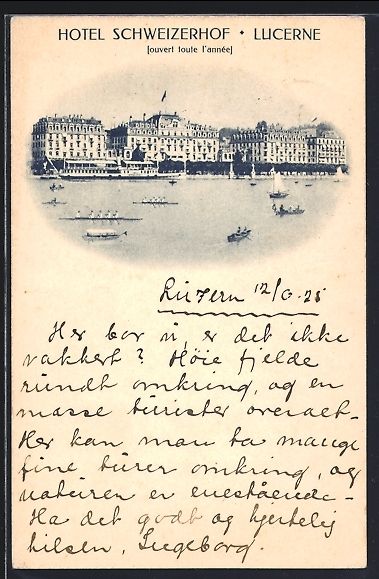 HOTEL SCHWEIZERHOF • LUCERNE
[ouvert toute l'année]
Luzern 12/6.25
Her bor vi, er det ikke
vakkert? Höie fjelde
rundt omkring, og en
masse turister overalt-
Her kan man ta mange
fine turer omkring, og
naturen er enestående-
Ha det godt og hjertelig
hilsen, Ingeborg.